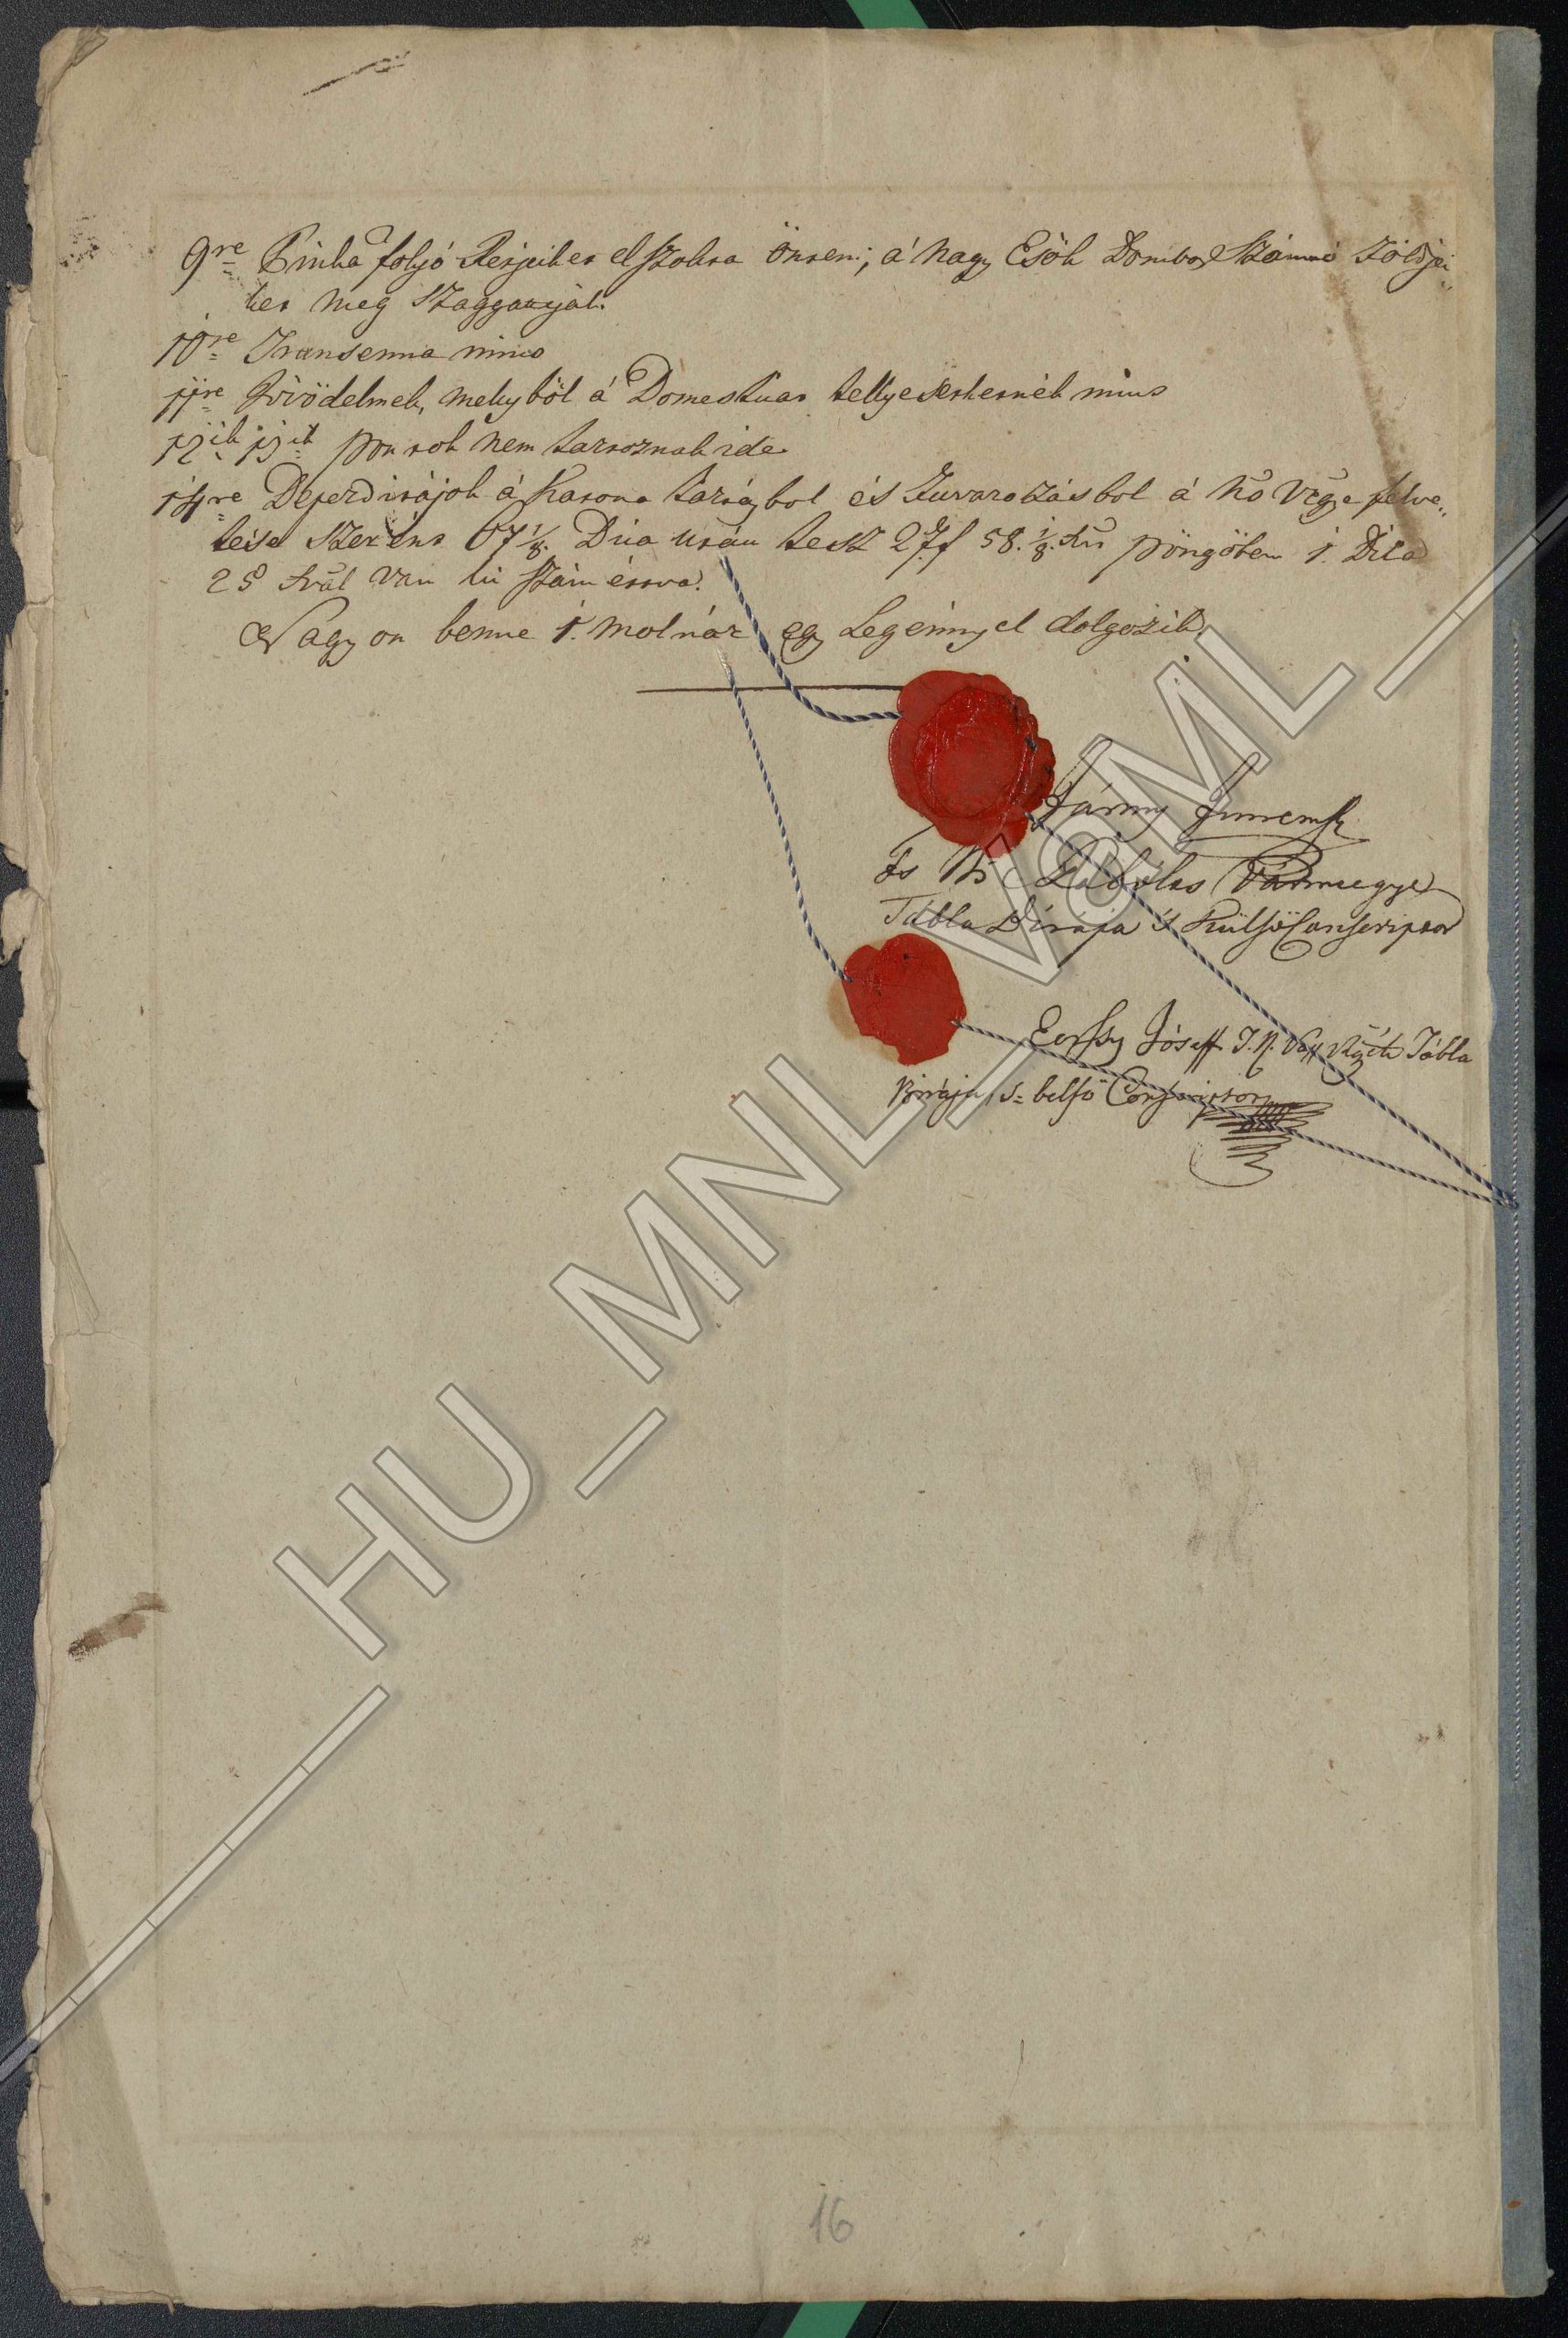 9re Pinka foljó Résjeiket el szokta önteni, á nagy Esök Dombos Szánnó földjei,,
ket meg szaggattyák.
10re Transenna nincs
11re Jövödelmek, mellyböl á Domestica tellyesithetnék nincs
12ik 13ik pontok nem tartoznak ide.
14re Deperditájok á Katona tartásbol és fuvarozásbol á ko Vgye felve,,
tése szerént 67 1/8. Dica után tesz 27 f 58. 1/8. kr pöngöben 1. Dica
25 kral van ki számétva.
Vagyon benne 1. molnár egy Legénnyel dolgozik.
Jármy
Ts Ns Szabolcs Vármegye
Tábla Birája 's Külsö Conscriptor
Eörsy Jóseff T. N. Vas Vgyék Tábla
Birája s= belsö Conscriptor
16
HU_MNL_VaML_